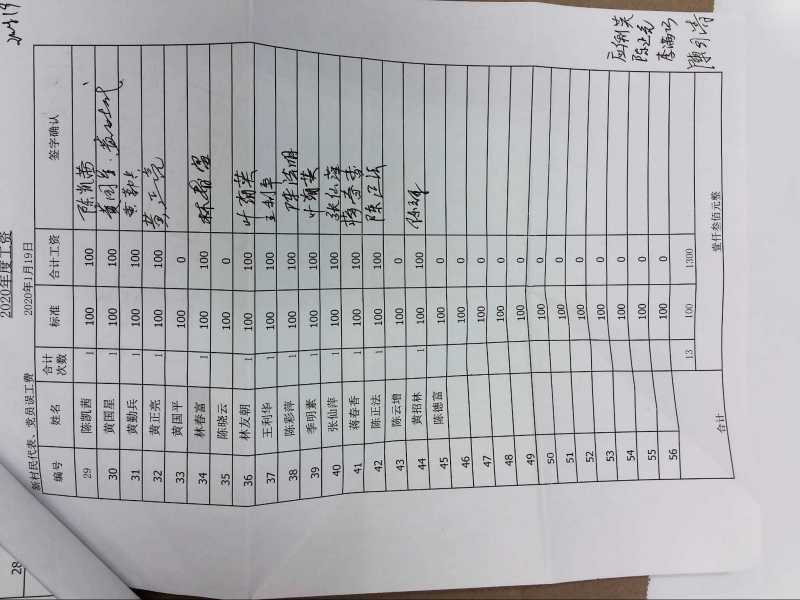 2020年度工资
新村民代表、党员误工费 2020年1月19日
编号 姓名 合计次数 标准 合计工资 签字确认
29 陈凯茜 1 100 100 陈凯茜
30 黄国星 1 100 100 黄国星
31 黄勤兵 1 100 100 黄勤兵
32 黄正亮 1 100 100 黄正亮
33 黄国平 100 0
34 林春富 1 100 100 林春富
35 陈晓云 100 0
36 林友朝 1 100 100 叶蒲英
37 王利华 1 100 100 王利华
38 陈彩萍 1 100 100
39 季明素 1 100 100
40 张仙萍 1 100 100 张仙萍
41 蒋春香 1 100 100 蒋春香
42 陈正法 1 100 100 陈正法
43 陈云增 100 0
44 黄招林 1 100 100
45 陈德富 100 0
46 100 0
47 100 0
48 100 0
49 100 0
50 100 0
51 100 0
52 100 0
53 100 0
54 100 0
55 100 0
56 100 0
合计 13 100 1300
壹仟叁佰元整
28